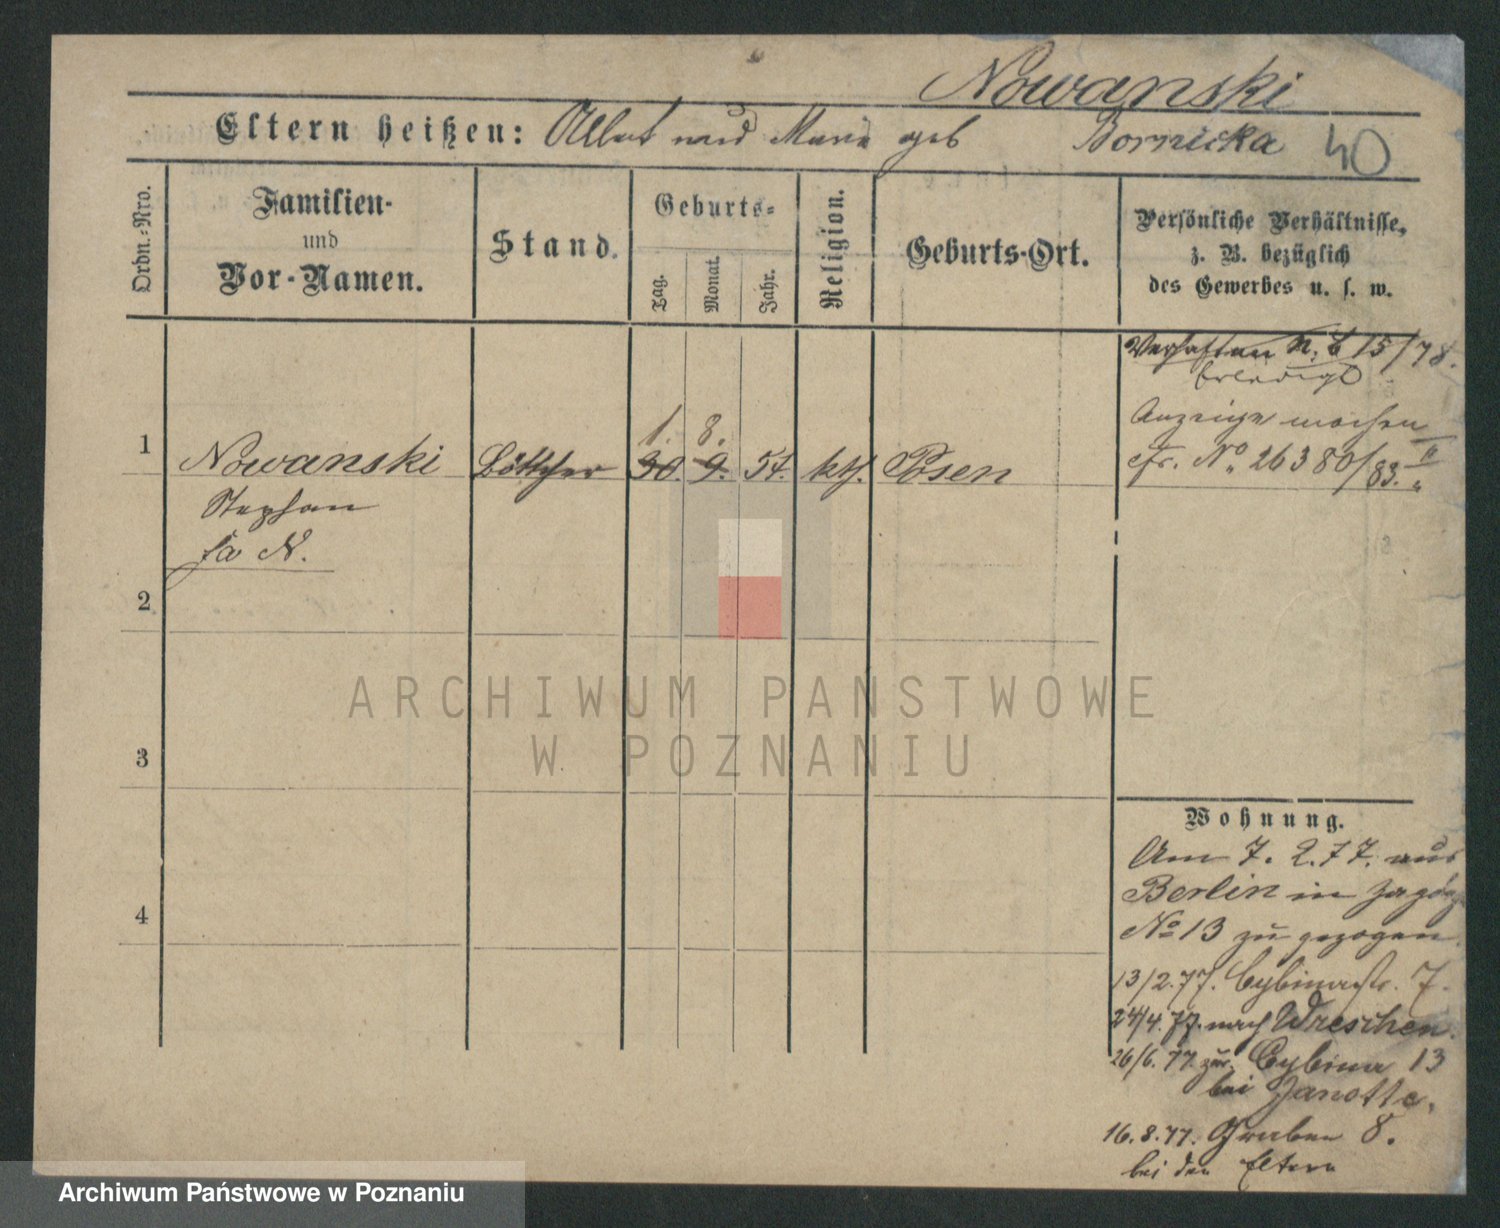 Nowanski
Eltern heißen: Albert und Marie geb Bornicka 40
Ordn.-Nro.
Familien-
und
Vor-Namen.
Stand.
Geburts-
Tag.
Monat.
Jahr.
Religion.
Geburts-Ort.
Persönliche Verhältnisse,
z. B. bezüglich
des Gewerbes u. s. w.
Verhaften N. 15/78.
Erledigt
Anzeige machen
cfr. No. 26380/83. II
1. 8.
1 Nowanski Böttcher 30. 9. 57. kth. Posen
Stephan
N.
2
3
4
ARCHIWUM PANSTWOWE
W POZNANIU
Wohnung.
Am 7. 2. 77. aus
Berlin in Zagórze
No 13 zu gezogen.
13/2.77. Cybinastr. 7.
24/4.77. nach Wreschen.
26/6.77 zur. Cybina 13
bei Janotte.
16.8.77. Graben 8.
bei den Eltern
Archiwum Państwowe w Poznaniu